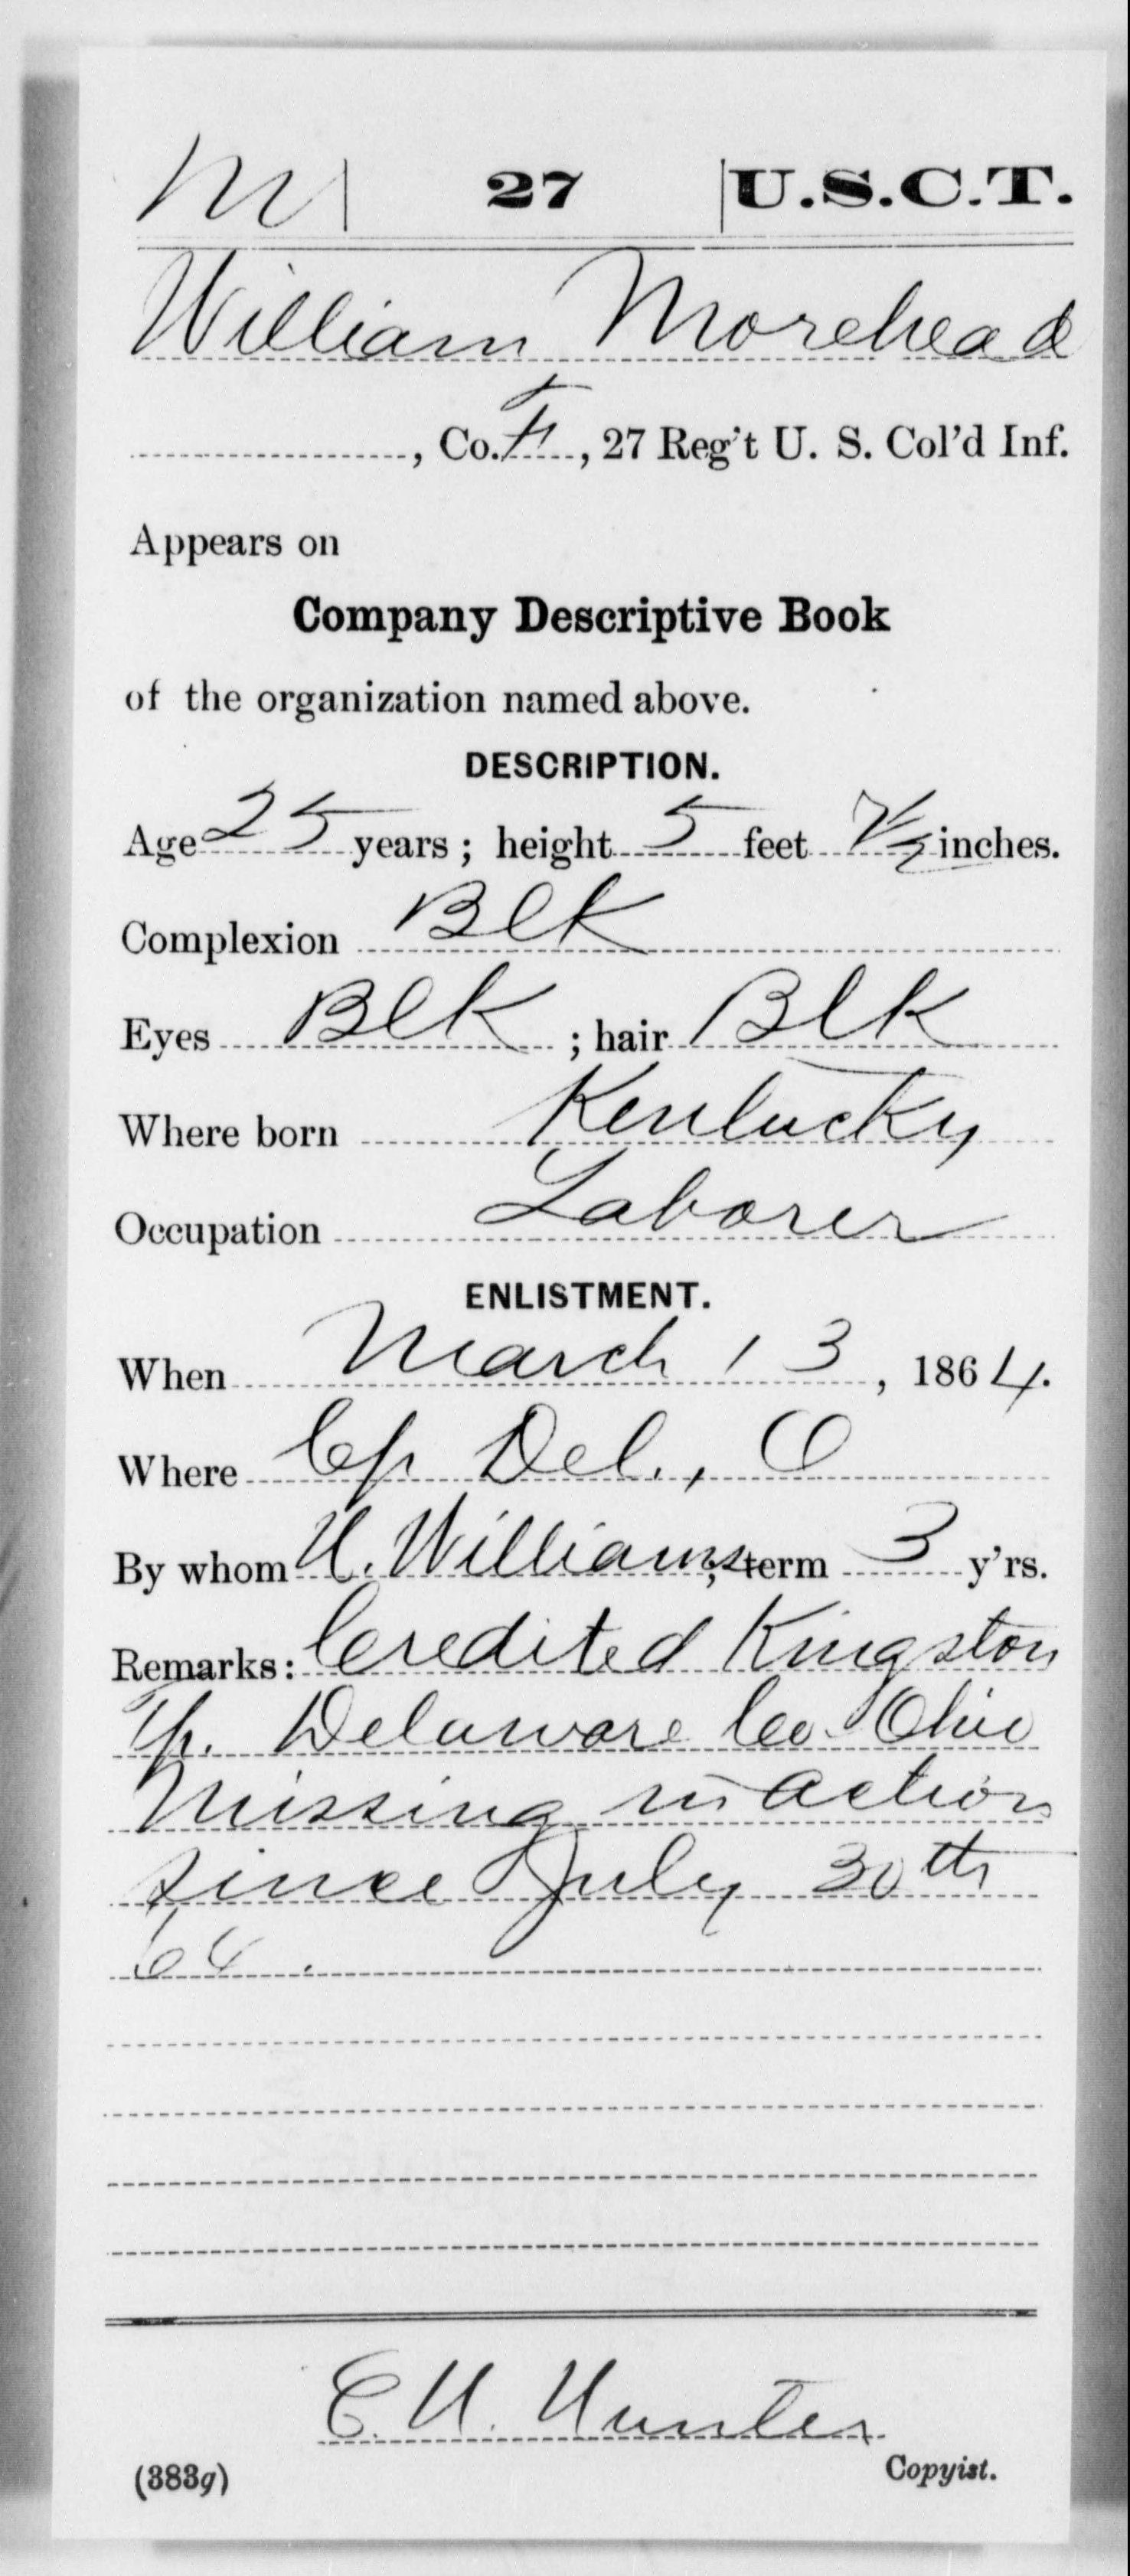 M | 27 | U.S.C.T.
William Morehead
, Co. F, 27 Reg't U. S. Col'd Inf.
Appears on
Company Descriptive Book
of the organization named above.
DESCRIPTION.
Age 25 years; height 5 feet 7½ inches.
Complexion Blk
Eyes Blk; hair Blk
Where born Kentucky
Occupation Laborer
ENLISTMENT.
When March 13, 1864.
Where Cp Del., O
By whom H. Williams; term 3 y'rs.
Remarks: Credited Kingston
Tp. Delaware Co. Ohio
Missing in action
since July 30th
64.
C. H. Hunter
Copyist.
(383g)